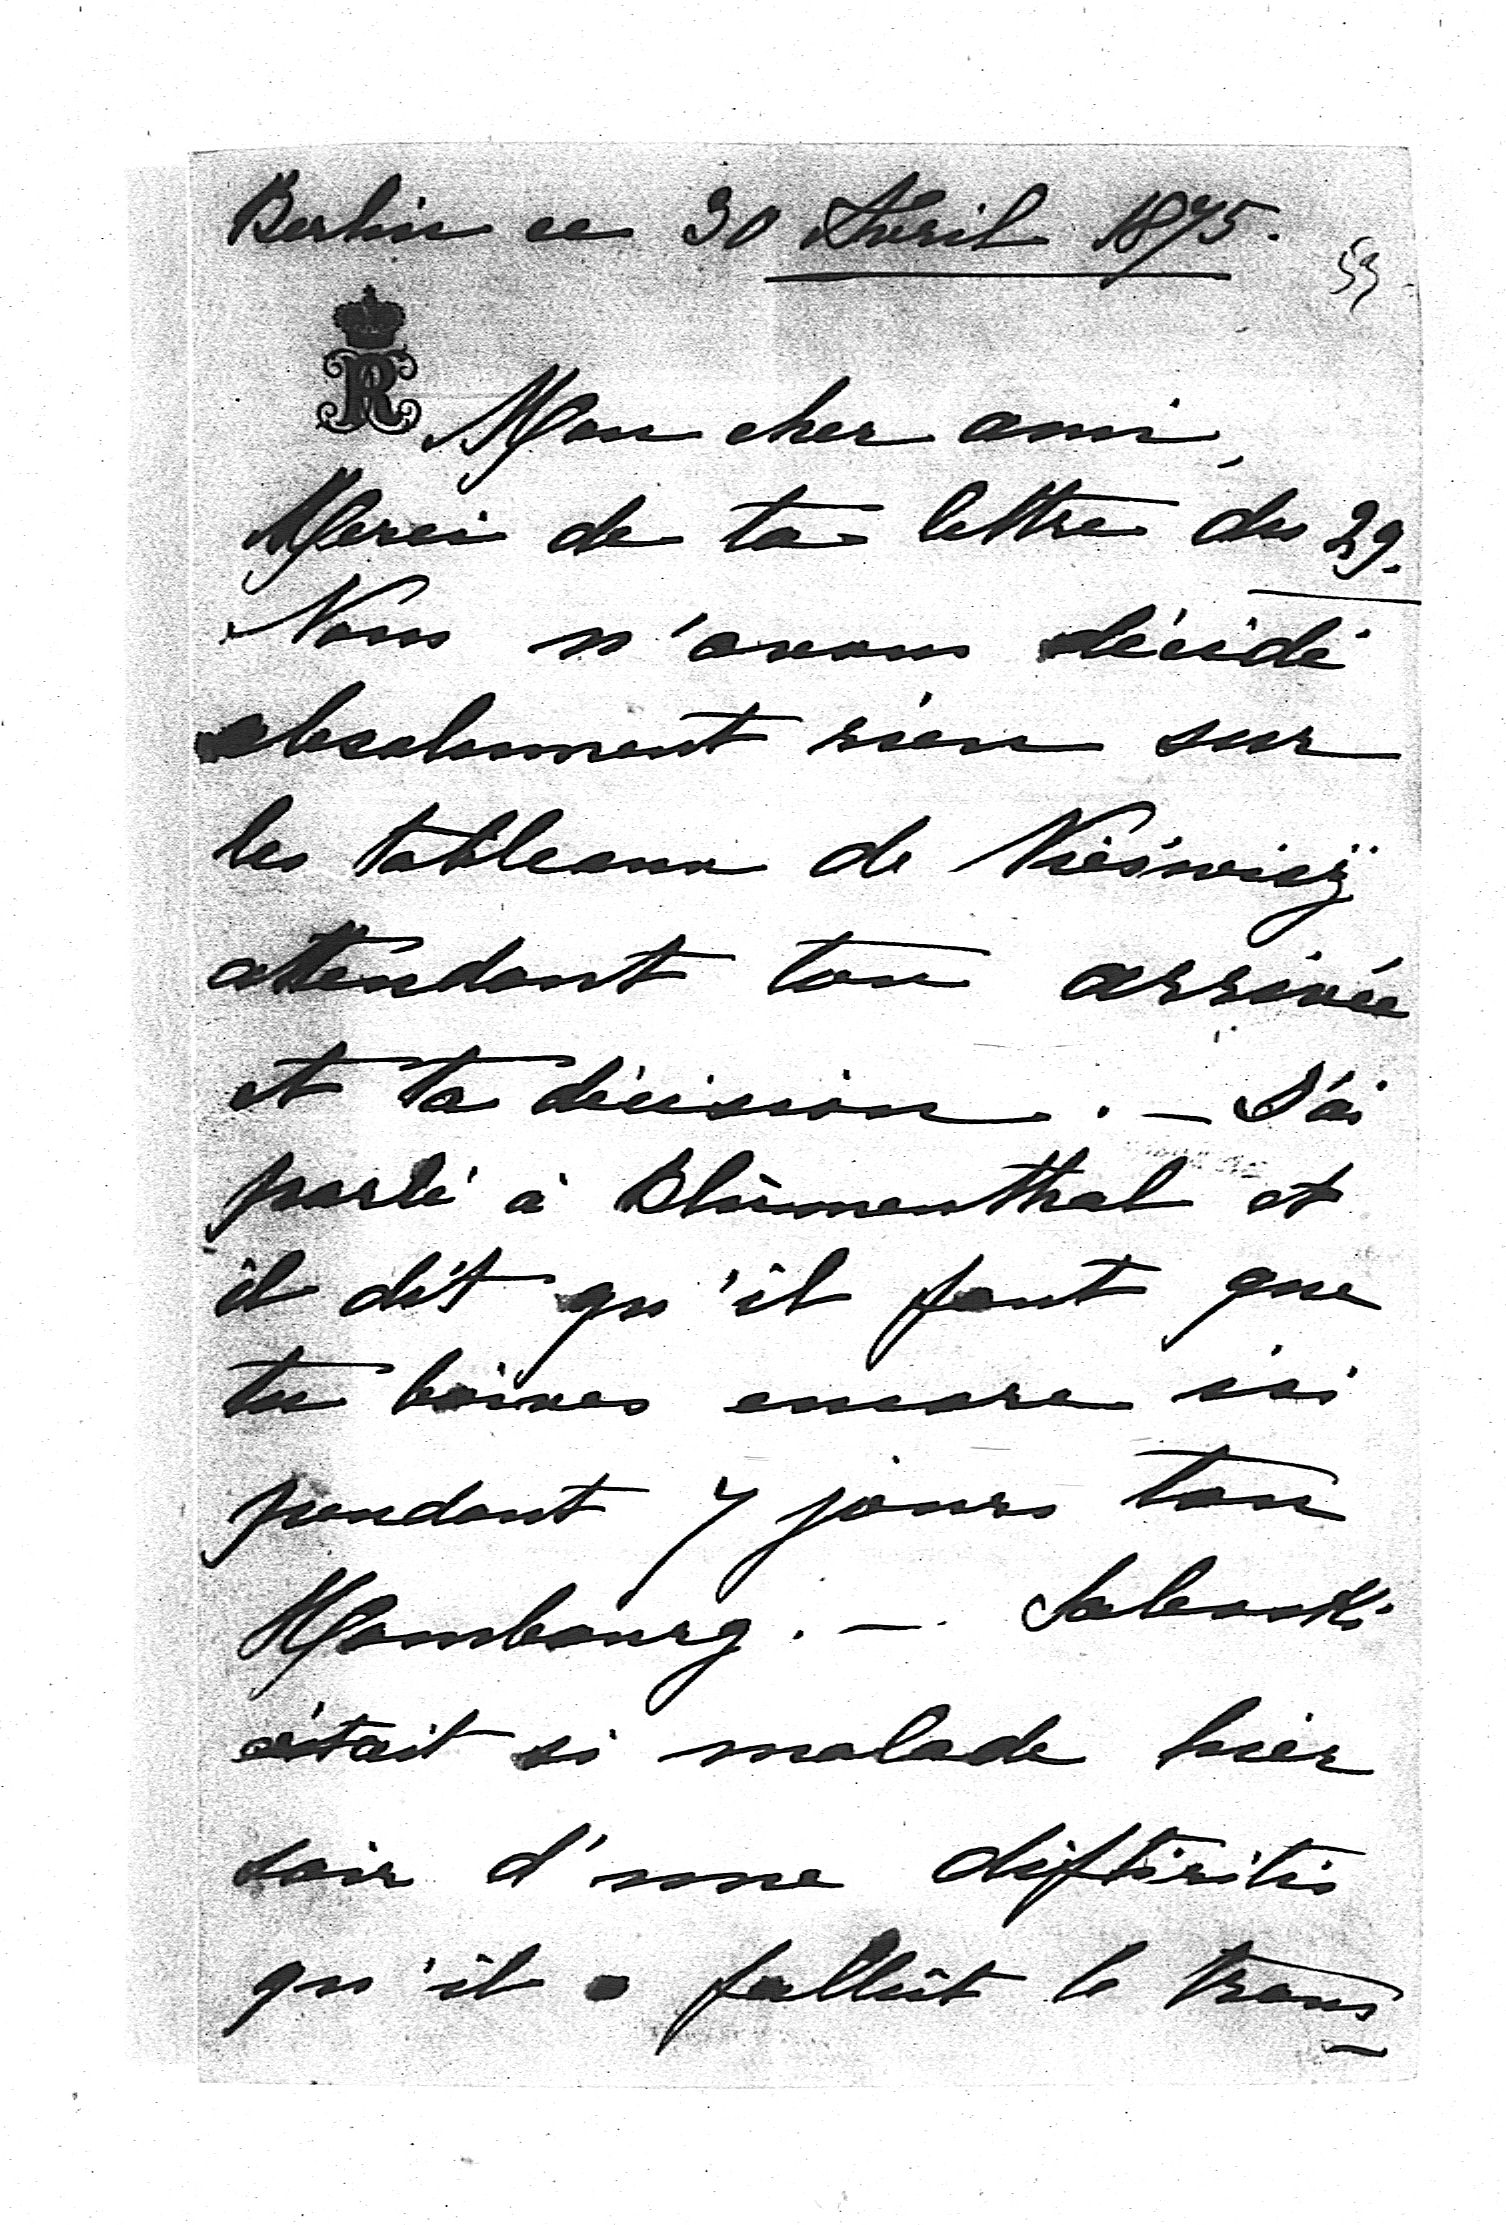 Berlin ce 30 Avril 1875.
53
R
Mon cher ami,
Merci de ta lettre du 29.
Nous n'avons décidé
absolument rien sur
les tableaux de Nieświcź
attendant ton arrivée
et ta décision. — J'ai
parlé à Blumenthal et
il dit qu'il faut que
tu boives encore ici
pendant 7 jours ton
Hombourg. —
était si malade hier
soir d'une difteritis
qu'il fallût le trans-